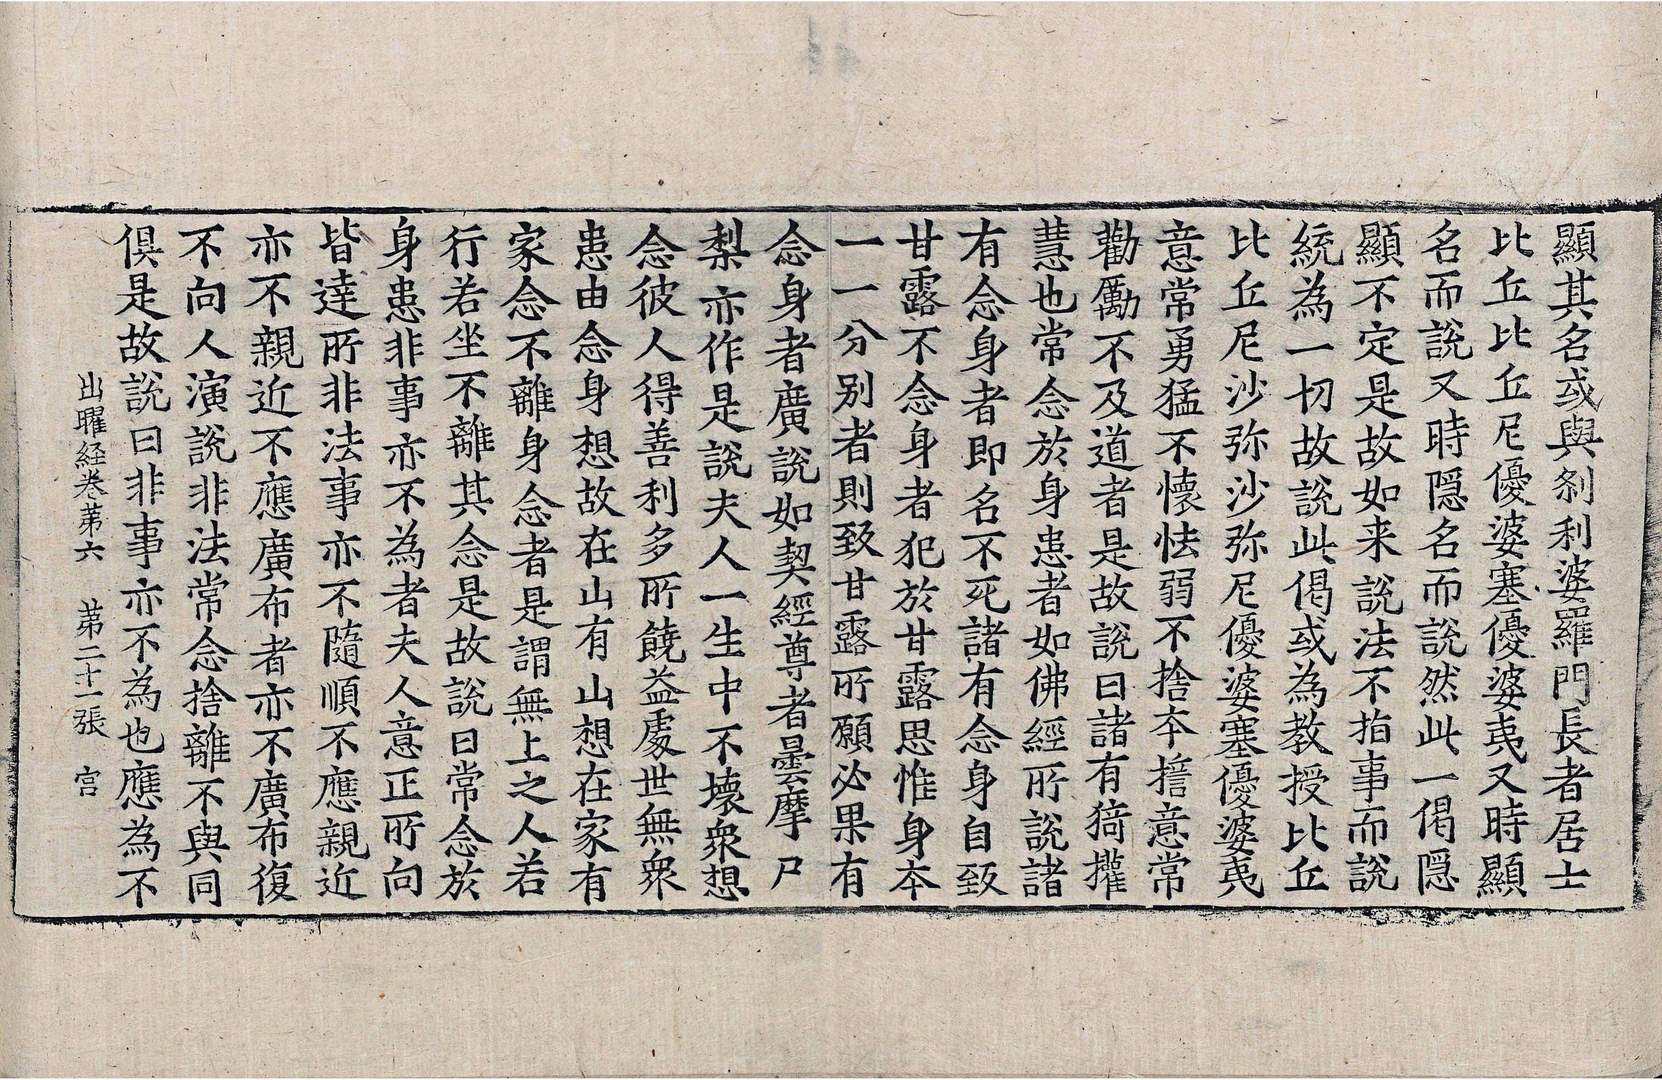 顯其名或與剎利婆羅門長者居士
比丘比丘尼優婆塞優婆夷又時顯
名而說又時隱名而說然此一偈隱
顯不定是故如来說法不拍事而說
統為一切故說此偈或為教授比丘
比丘尼沙弥沙弥尼優婆塞優婆夷
意常勇猛不懷怯弱不捨本擔意常
勸勵不及道者是故說曰諸有猗攉
慧也常念於身患者如佛經所說諸
有念身者即名不死諸有念身自致
甘露不念身者犯於甘露思惟身本
一一分别者則致甘露所願必果有
念身者廣說如契經尊者曇摩尸
梨亦作是說夫人一生中不壞衆想
念彼人得善利多所饒益處世無衆
患由念身想故在山有山想在家有
家念不離身念者是謂無上之人若
行若坐不離其念是故說曰常念於
身患非事亦不為者夫人意正所向
皆達所非法事亦不隨順不應親近
亦不親近不應廣布者亦不廣布復
不向人演說非法常念捨離不與同
俱是故說曰非事亦不為也應為不
出曜経卷第六 第二十一張 宫